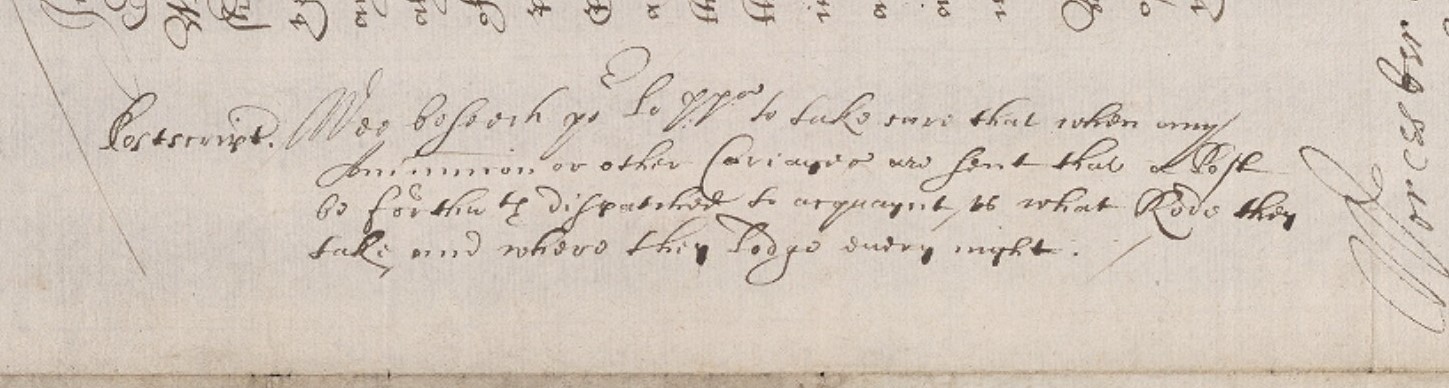 Postscript. Wee beseech yor Lopps to take care that when any
Amunition or other Cariages are sent that a Post
be forthwth dispatched to acquaynt us what Rode they
take and where they Lodge euery night.
Worcester